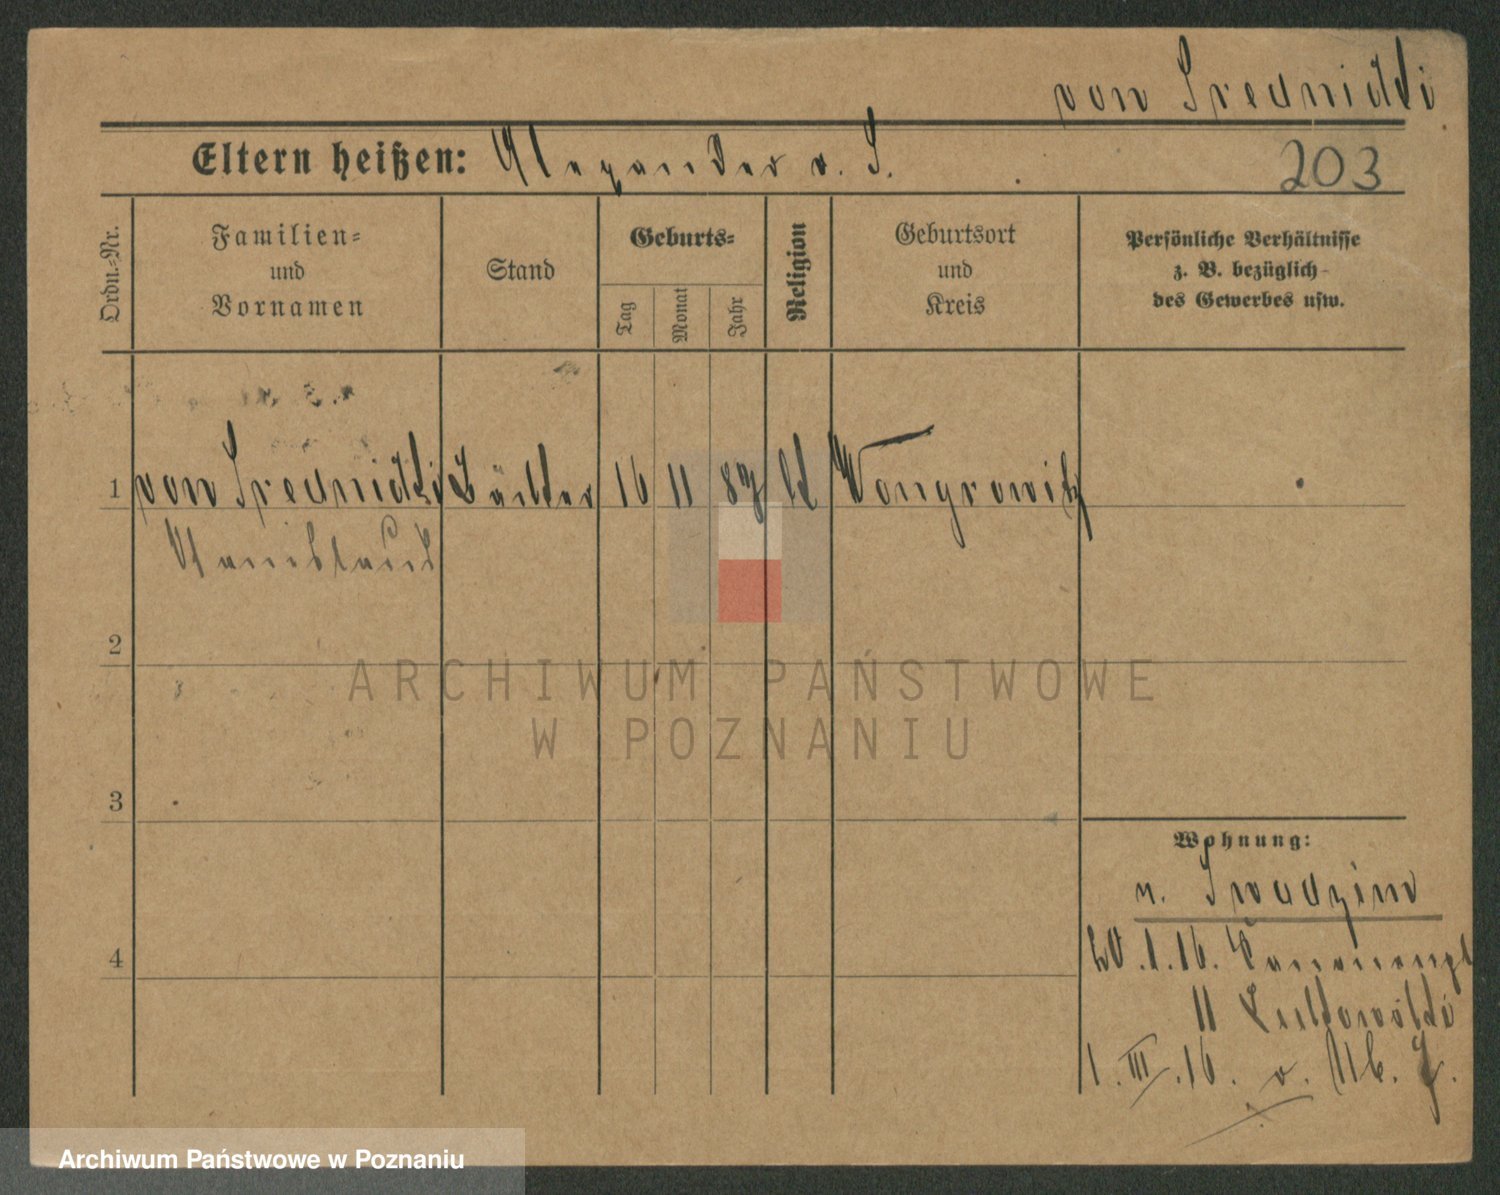 von Srednicki
Eltern heißen: Alexander v. S.
203
Ordn.-Nr.
Familien-
und
Vornamen
Stand
Geburts-
Tag
Monat
Jahr
Religion
Geburtsort
und
Kreis
Persönliche Verhältnisse
z. B. bezüglich
des Gewerbes usw.
1 von Srednicki 16 11 87 kt Wongrowitz
Stanislaus
2
3
Wohnung:
n. Swadzim
20.1.16.
4
11
1.III.16. v.
ARCHIWUM PAŃSTWOWE
W POZNANIU
Archiwum Państwowe w Poznaniu